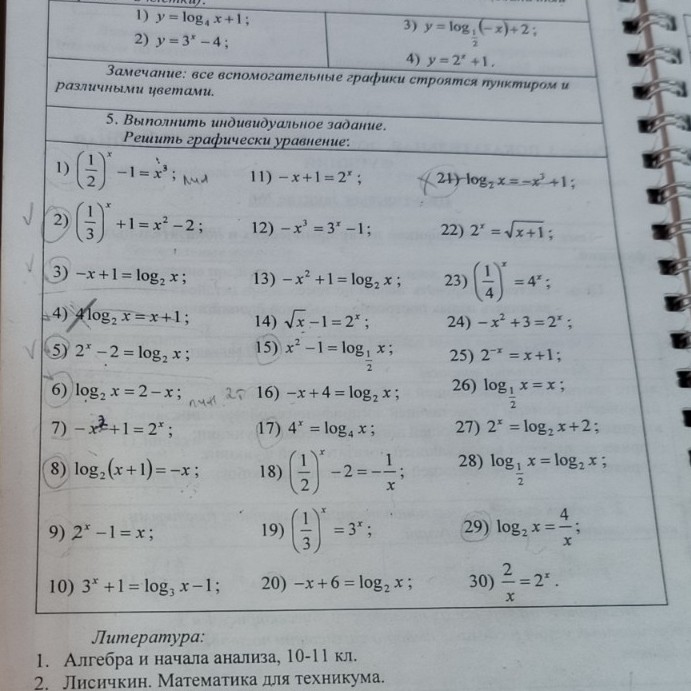 1) y = log₄ x + 1;
3) y = log_{1/2}(−x) + 2;
2) y = 3ˣ − 4;
4) y = 2ˣ + 1.
Замечание: все вспомогательные графики строятся пунктиром и
различными цветами.
5. Выполнить индивидуальное задание.
Решить графически уравнение:
1) (1/2)ˣ − 1 = x³; 11) − x + 1 = 2ˣ; 21) log₂ x = −x³ + 1;
2) (1/3)ˣ + 1 = x² − 2; 12) − x³ = 3ˣ − 1; 22) 2ˣ = √(x+1);
3) −x + 1 = log₂ x; 13) − x² + 1 = log₂ x; 23) (1/4)ˣ = 4ˣ;
4) log₂ x = x + 1; 14) √x − 1 = 2ˣ; 24) − x² + 3 = 2ˣ;
5) 2ˣ − 2 = log₂ x; 15) x² − 1 = log_{1/2} x; 25) 2⁻ˣ = x + 1;
6) log₂ x = 2 − x; 16) −x + 4 = log₂ x; 26) log_{1/2} x = x;
7) − x² + 1 = 2ˣ; 17) 4ˣ = log₄ x; 27) 2ˣ = log₂ x + 2;
8) log₂(x + 1) = −x; 18) (1/2)ˣ − 2 = −1/x; 28) log_{1/2} x = log₂ x;
9) 2ˣ − 1 = x; 19) (1/3)ˣ = 3ˣ; 29) log₂ x = 4/x;
10) 3ˣ + 1 = log₃ x − 1; 20) −x + 6 = log₂ x; 30) 2/x = 2ˣ.
Литература:
1. Алгебра и начала анализа, 10-11 кл.
2. Лисичкин. Математика для техникума.